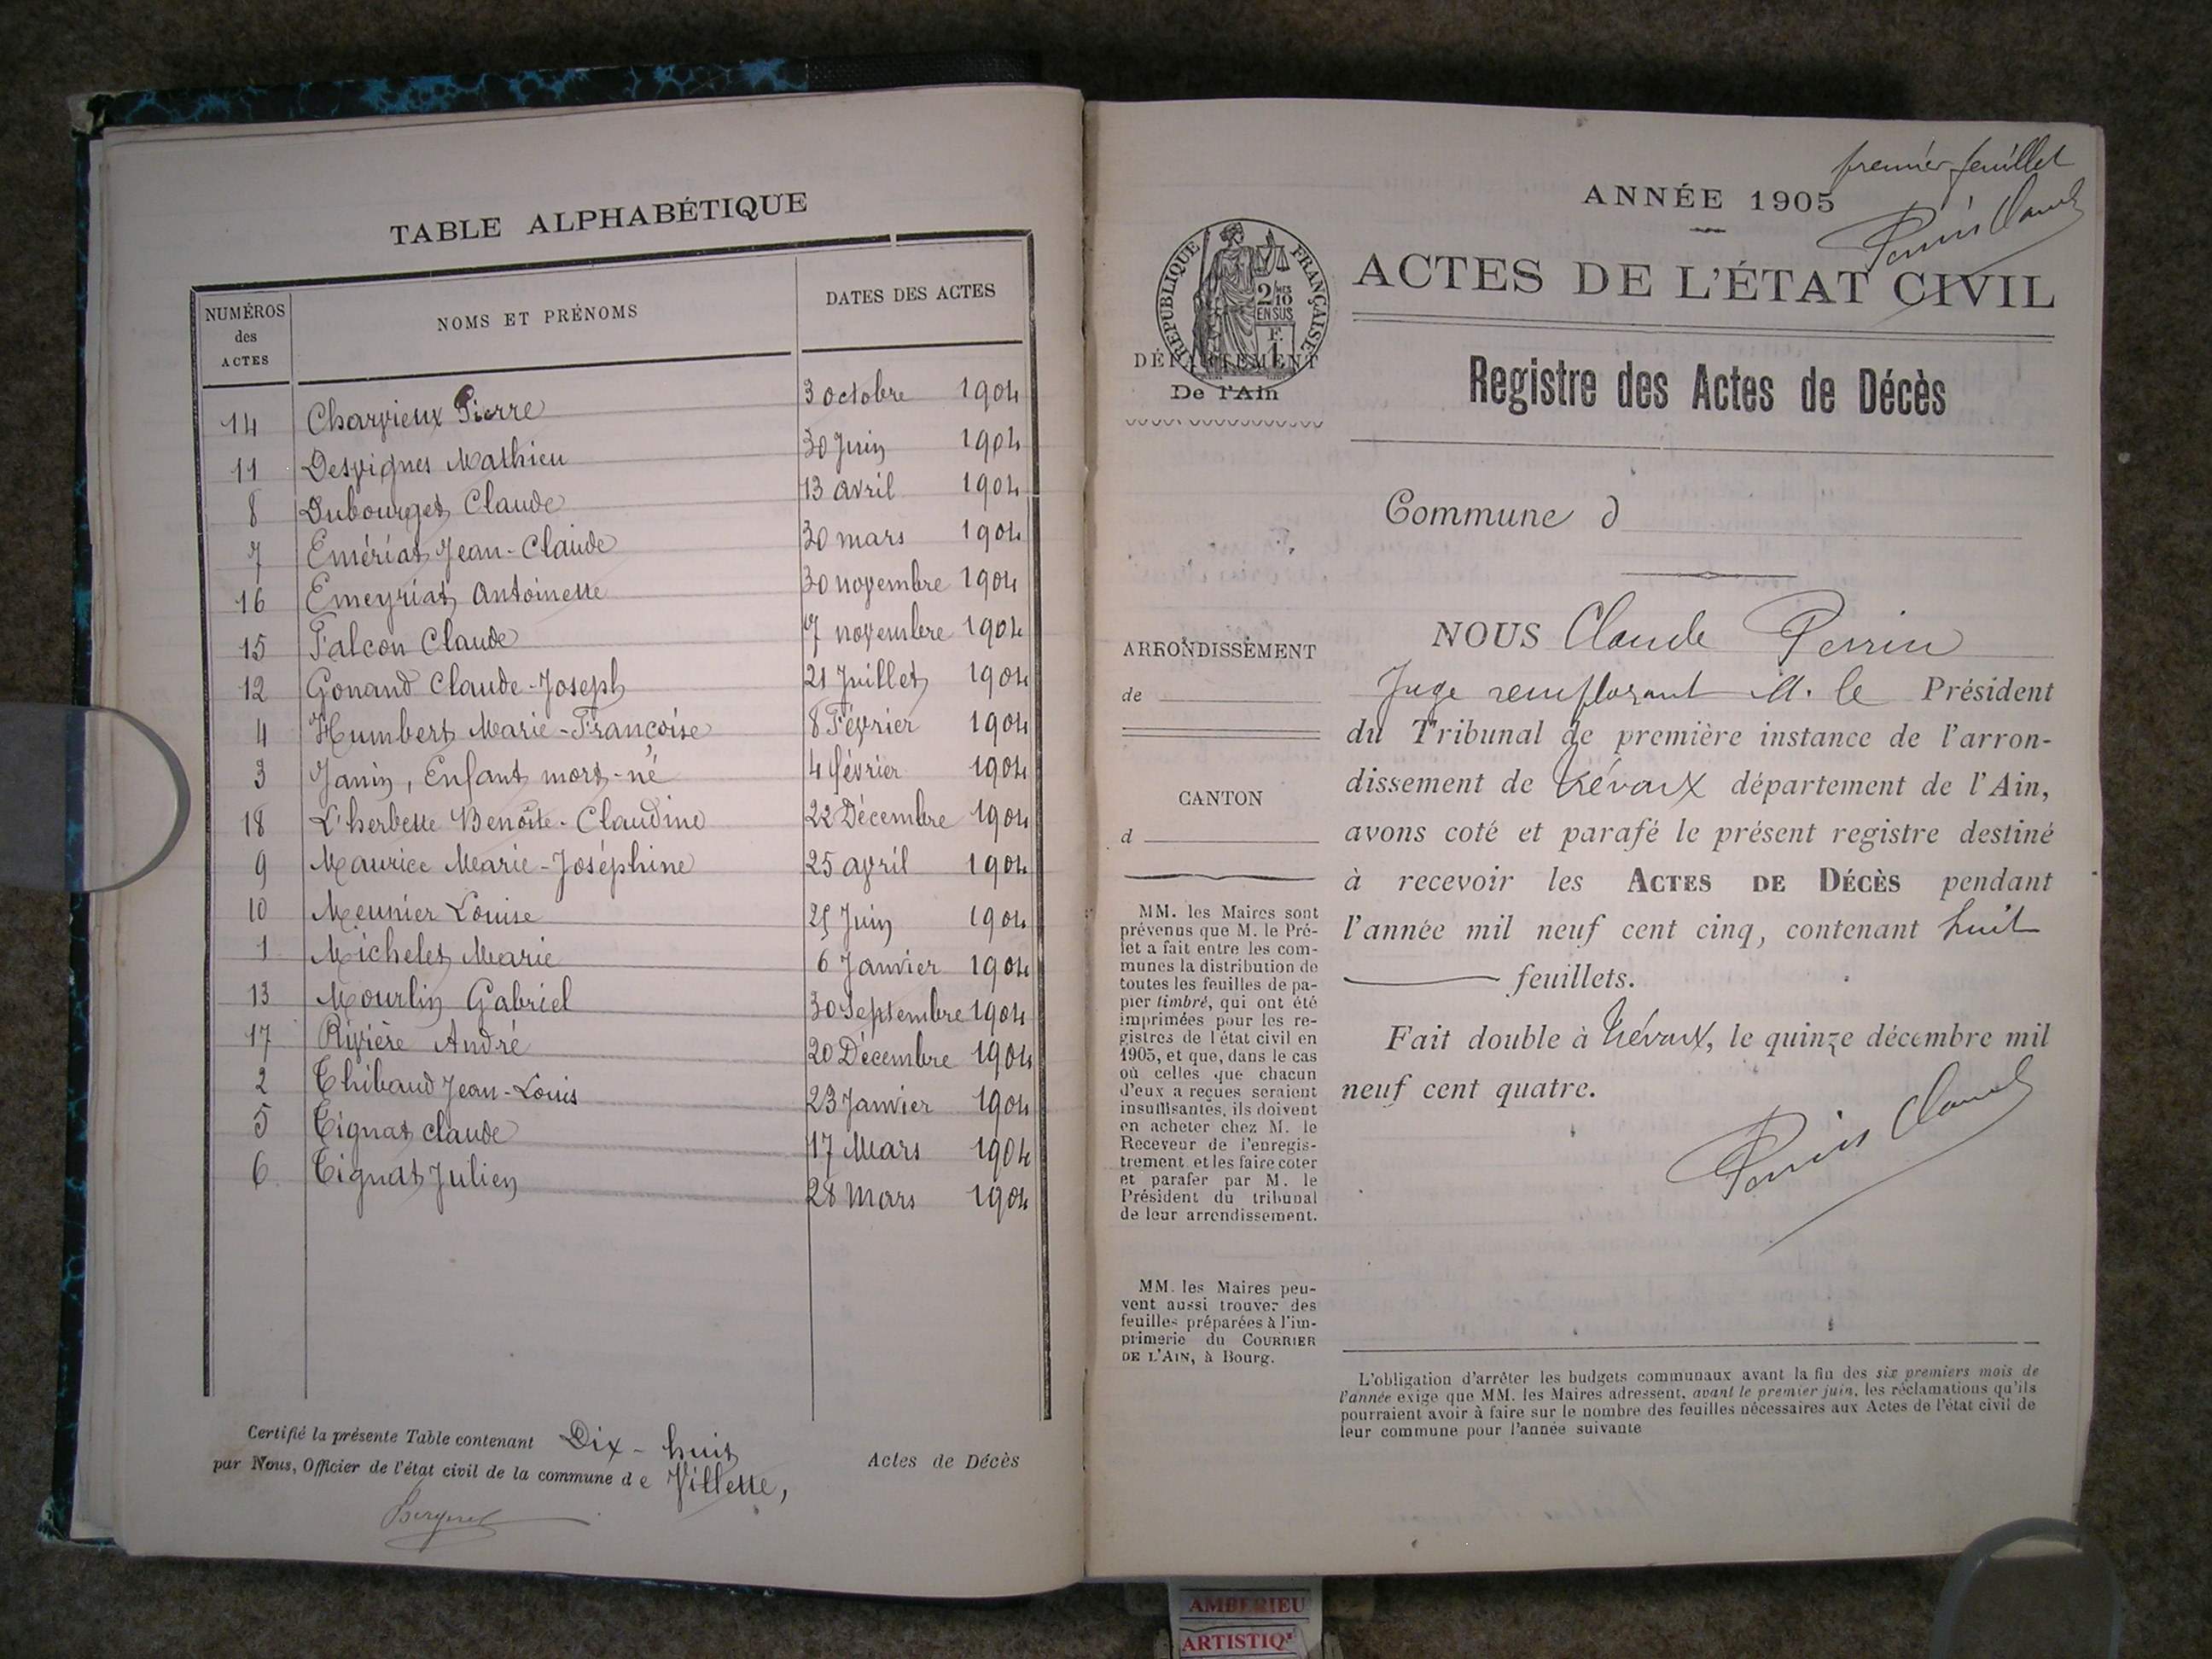 TABLE ALPHABÉTIQUE
NUMÉROS des ACTES NOMS ET PRÉNOMS DATES DES ACTES
14 Charvieux Pierre 3 octobre 1904
11 Desvignes Mathieu 30 Juin 1904
8 Dubourget Claude 13 avril 1904
7 Emériat Jean-Claude 30 mars 1904
16 Emeyriat Antoinette 30 novembre 1904
15 Falcon Claude 7 novembre 1904
12 Gonand Claude-Joseph 21 Juillet 1904
4 Humbert Marie-Françoise 8 Février 1904
3 Janin, Enfant mort-né 4 février 1904
18 L'herbette Benoîte-Claudine 22 Décembre 1904
9 Maurice Marie-Joséphine 25 avril 1904
10 Meunier Louise Juin 1904
1 Michelet Marie 6 Janvier 1904
13 Mourlin Gabriel 30 Septembre 1904
17 Rivière André 20 Décembre 1904
2 Thibaud Jean-Louis 23 Janvier 1904
5 Tignat Claude 17 Mars 1904
6 Tignat Julien 28 Mars 1904
Certifié la présente Table contenant Dix-huit Actes de Décès
par Nous, Officier de l'état civil de la commune de Villette,
premier feuillet
ANNÉE 1905
Perrin Claude
RÉPUBLIQUE FRANÇAISE
2/10 MES
EN SUS
F.
1
ACTES DE L'ÉTAT CIVIL
DÉPARTEMENT
De l'Ain
Registre des Actes de Décès
Commune d
ARRONDISSEMENT
de
CANTON
d
MM. les Maires sont
prévenus que M. le Pré-
fet a fait entre les com-
munes la distribution de
toutes les feuilles de pa-
pier timbré, qui ont été
imprimées pour les re-
gistres de l'état civil en
1905, et que, dans le cas
où celles que chacun
d'eux a reçues seraient
insuffisantes, ils doivent
en acheter chez M. le
Receveur de l'enregis-
trement et les faire coter
et parafer par M. le
Président du tribunal
de leur arrondissement.
MM. les Maires peu-
vent aussi trouver des
feuilles préparées à l'im-
primerie du COURRIER
DE L'AIN, à Bourg.
NOUS Claude Perrin
Juge remplaçant M. le Président
du Tribunal de première instance de l'arron-
dissement de Trévoux département de l'Ain,
avons coté et parafé le présent registre destiné
à recevoir les ACTES DE DÉCÈS pendant
l'année mil neuf cent cinq, contenant huit
feuillets.
Fait double à Trévoux, le quinze décembre mil
neuf cent quatre.
Perrin Claude
L'obligation d'arrêter les budgets communaux avant la fin des six premiers mois de
l'année exige que MM. les Maires adressent, avant le premier juin, les réclamations qu'ils
pourraient avoir à faire sur le nombre des feuilles nécessaires aux Actes de l'état civil de
leur commune pour l'année suivante
AMBERIEU
ARTISTIQ